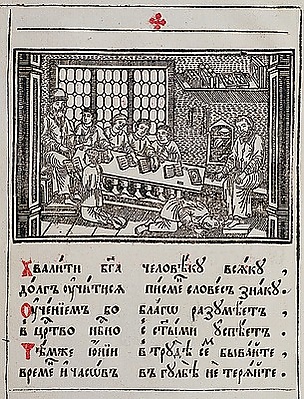 Хвалити бг҃а человѣку всѧку ,
долгъ ѹчитисѧ писмє словесъ знаку .
Оученїемъ бо благо разумѣетъ ,
в црⷭ҇тво нбⷭ҇но с ст҃ыми успѣетъ .
Тѣмже юнїи в трудѣ сем бывайте ,
времѧ и часовъ в гулбѣ не терѧйте .